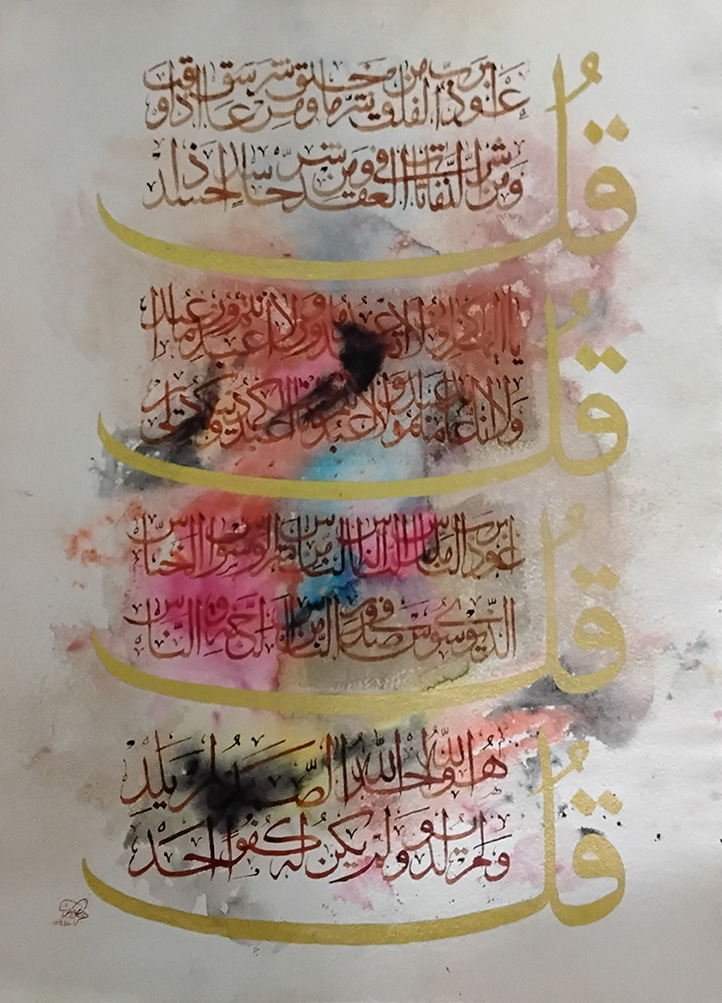 قُل
أعوذ برب الفلق من شر ما خلق ومن شر غاسق إذا وقب
ومن شر النفاثات في العقد ومن شر حاسد إذا حسد
قُل
يا أيها الكافرون لا أعبد ما تعبدون ولا أنتم عابدون ما أعبد
ولا أنا عابد ما عبدتم ولا أنتم عابدون ما أعبد لكم دينكم ولي دين
قُل
أعوذ برب الناس ملك الناس إله الناس من شر الوسواس الخناس
الذي يوسوس في صدور الناس من الجنة والناس
قُل
هو الله أحد الله الصمد لم يلد
ولم يولد ولم يكن له كفوا أحد